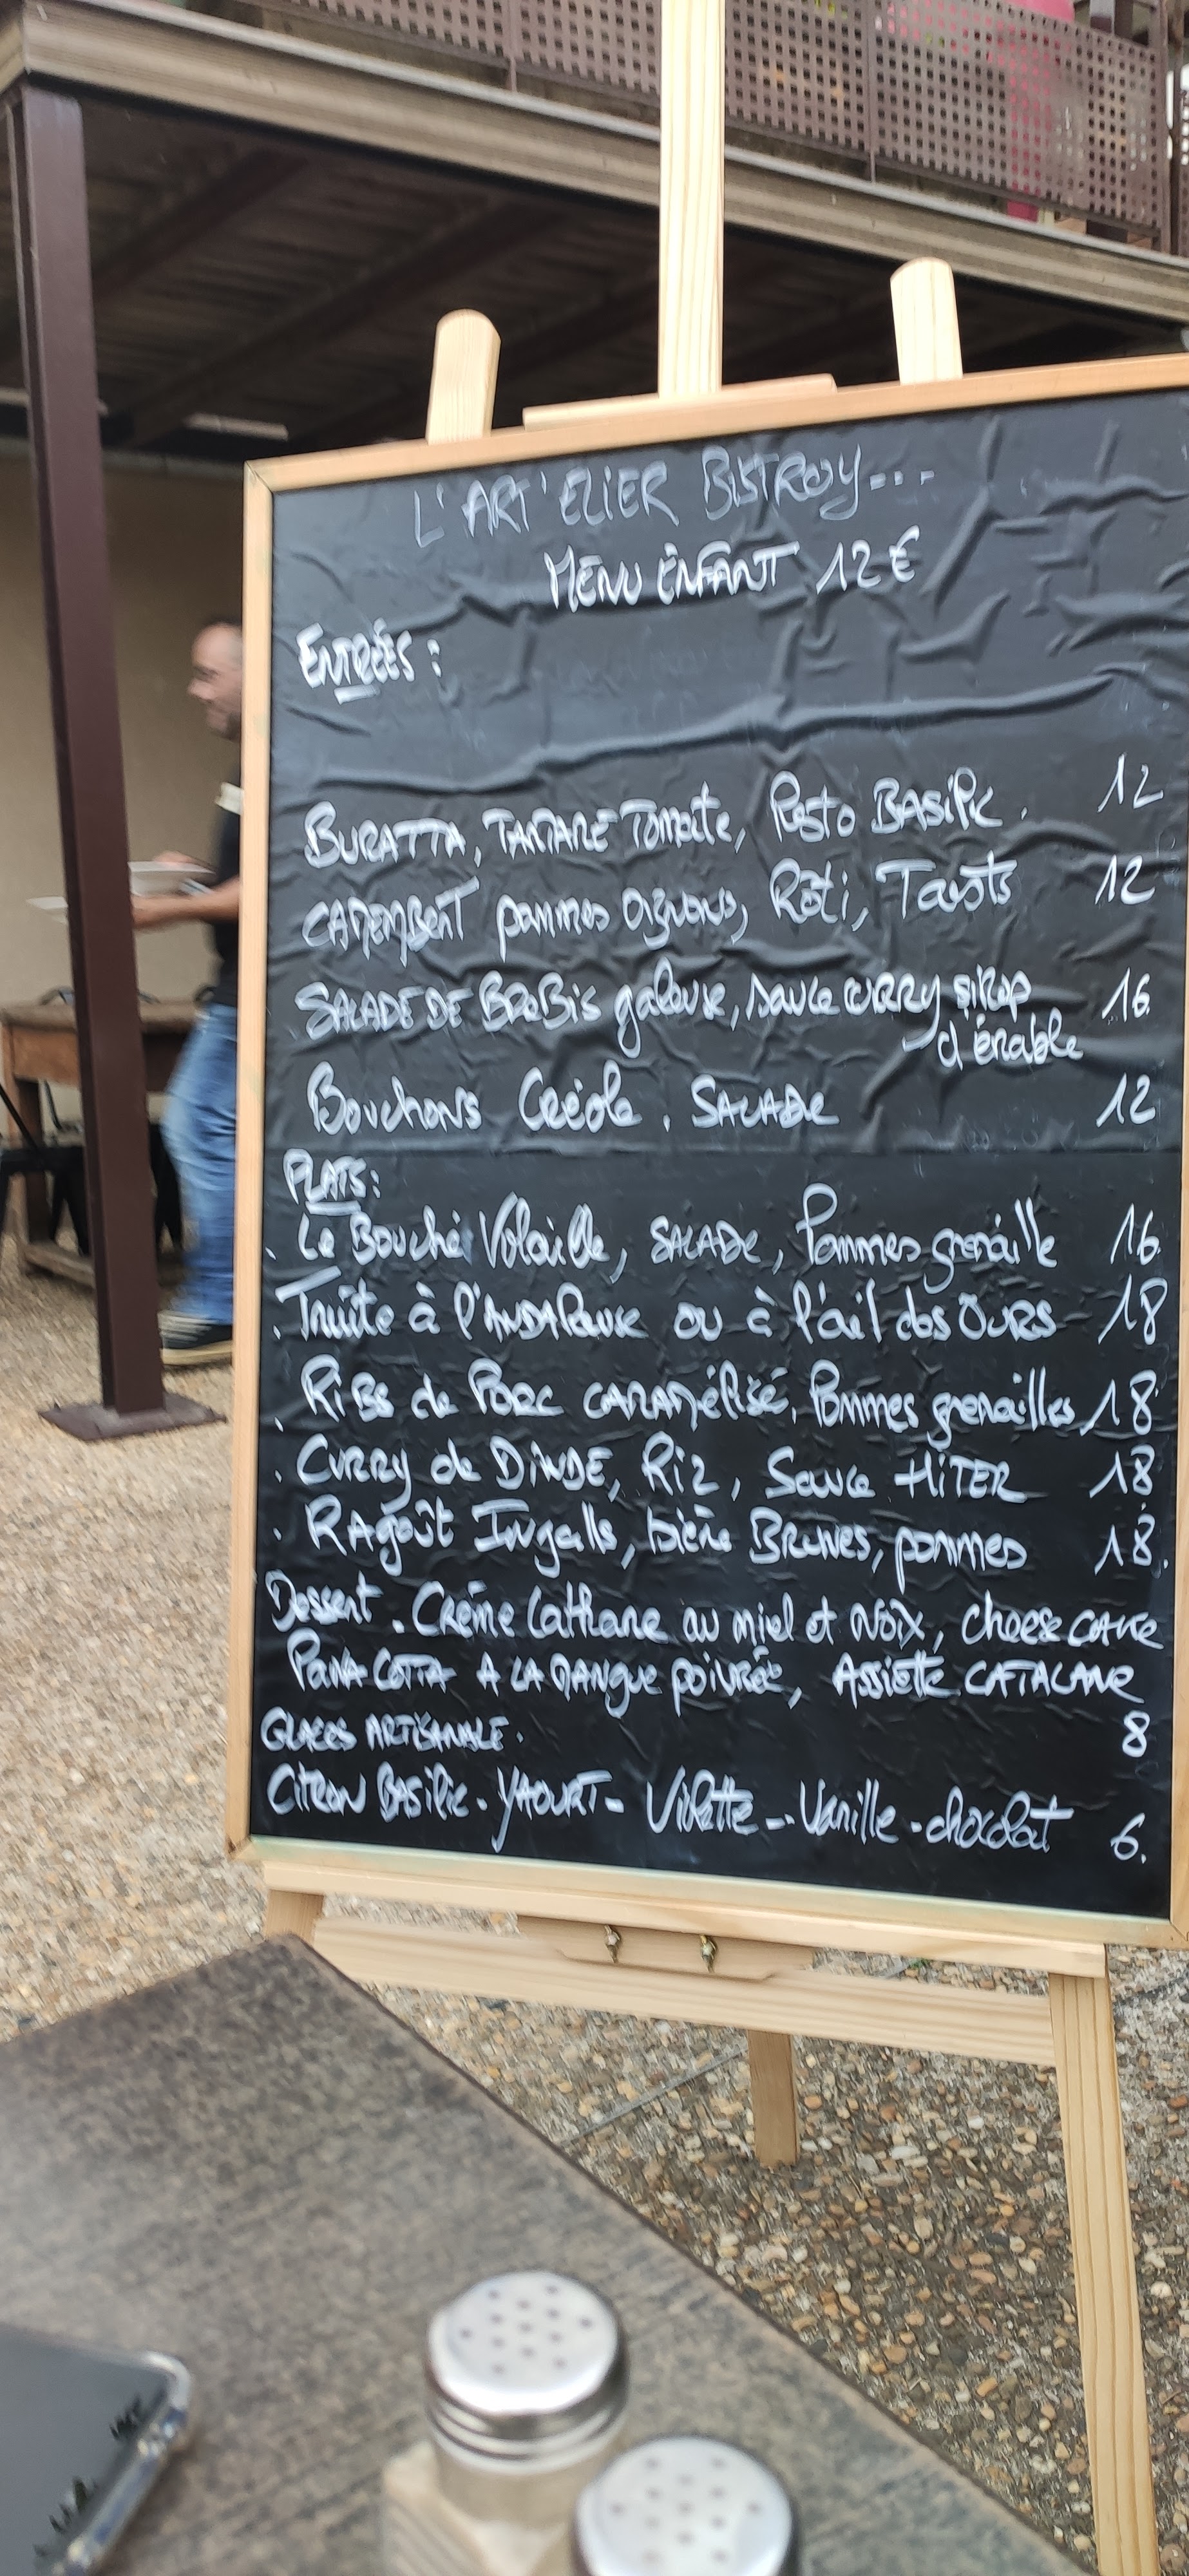 L'ART'ELIER BISTROY...
MENU ENFANT 12€
ENTRÉES :
BURATTA, TARTARE TOMATE, Pesto BASILIC. 12
CAMEMBERT pommes oignons, Rôti, Toasts 12
SALADE DE BREBIS galouse, sauce CURRY sirop 16
d'érable
Bouchons Créole. SALADE 12
PLATS:
. Le Bouché Volaille, SALADE, Pommes grenaille 16
. Truite à l'ANDALOUSE ou à l'ail des OURS 18
. RiBs de PORC CARAMÉLISÉ, Pommes grenailles 18
. CURRY de DiNDE, Riz, Sauce 18
. RAgoût Ingalls, bière BRUNES, pommes 18.
Dessert. Crème Cathane au miel et NOIX, cheese CAKE
PANA COTTA A LA MANGUE poivrée, Assiette CATALANE
GLACES ARTISANALE. 8
CiTRON BASilic - YAOURT - Violette -- Vanille - chocolat 6.